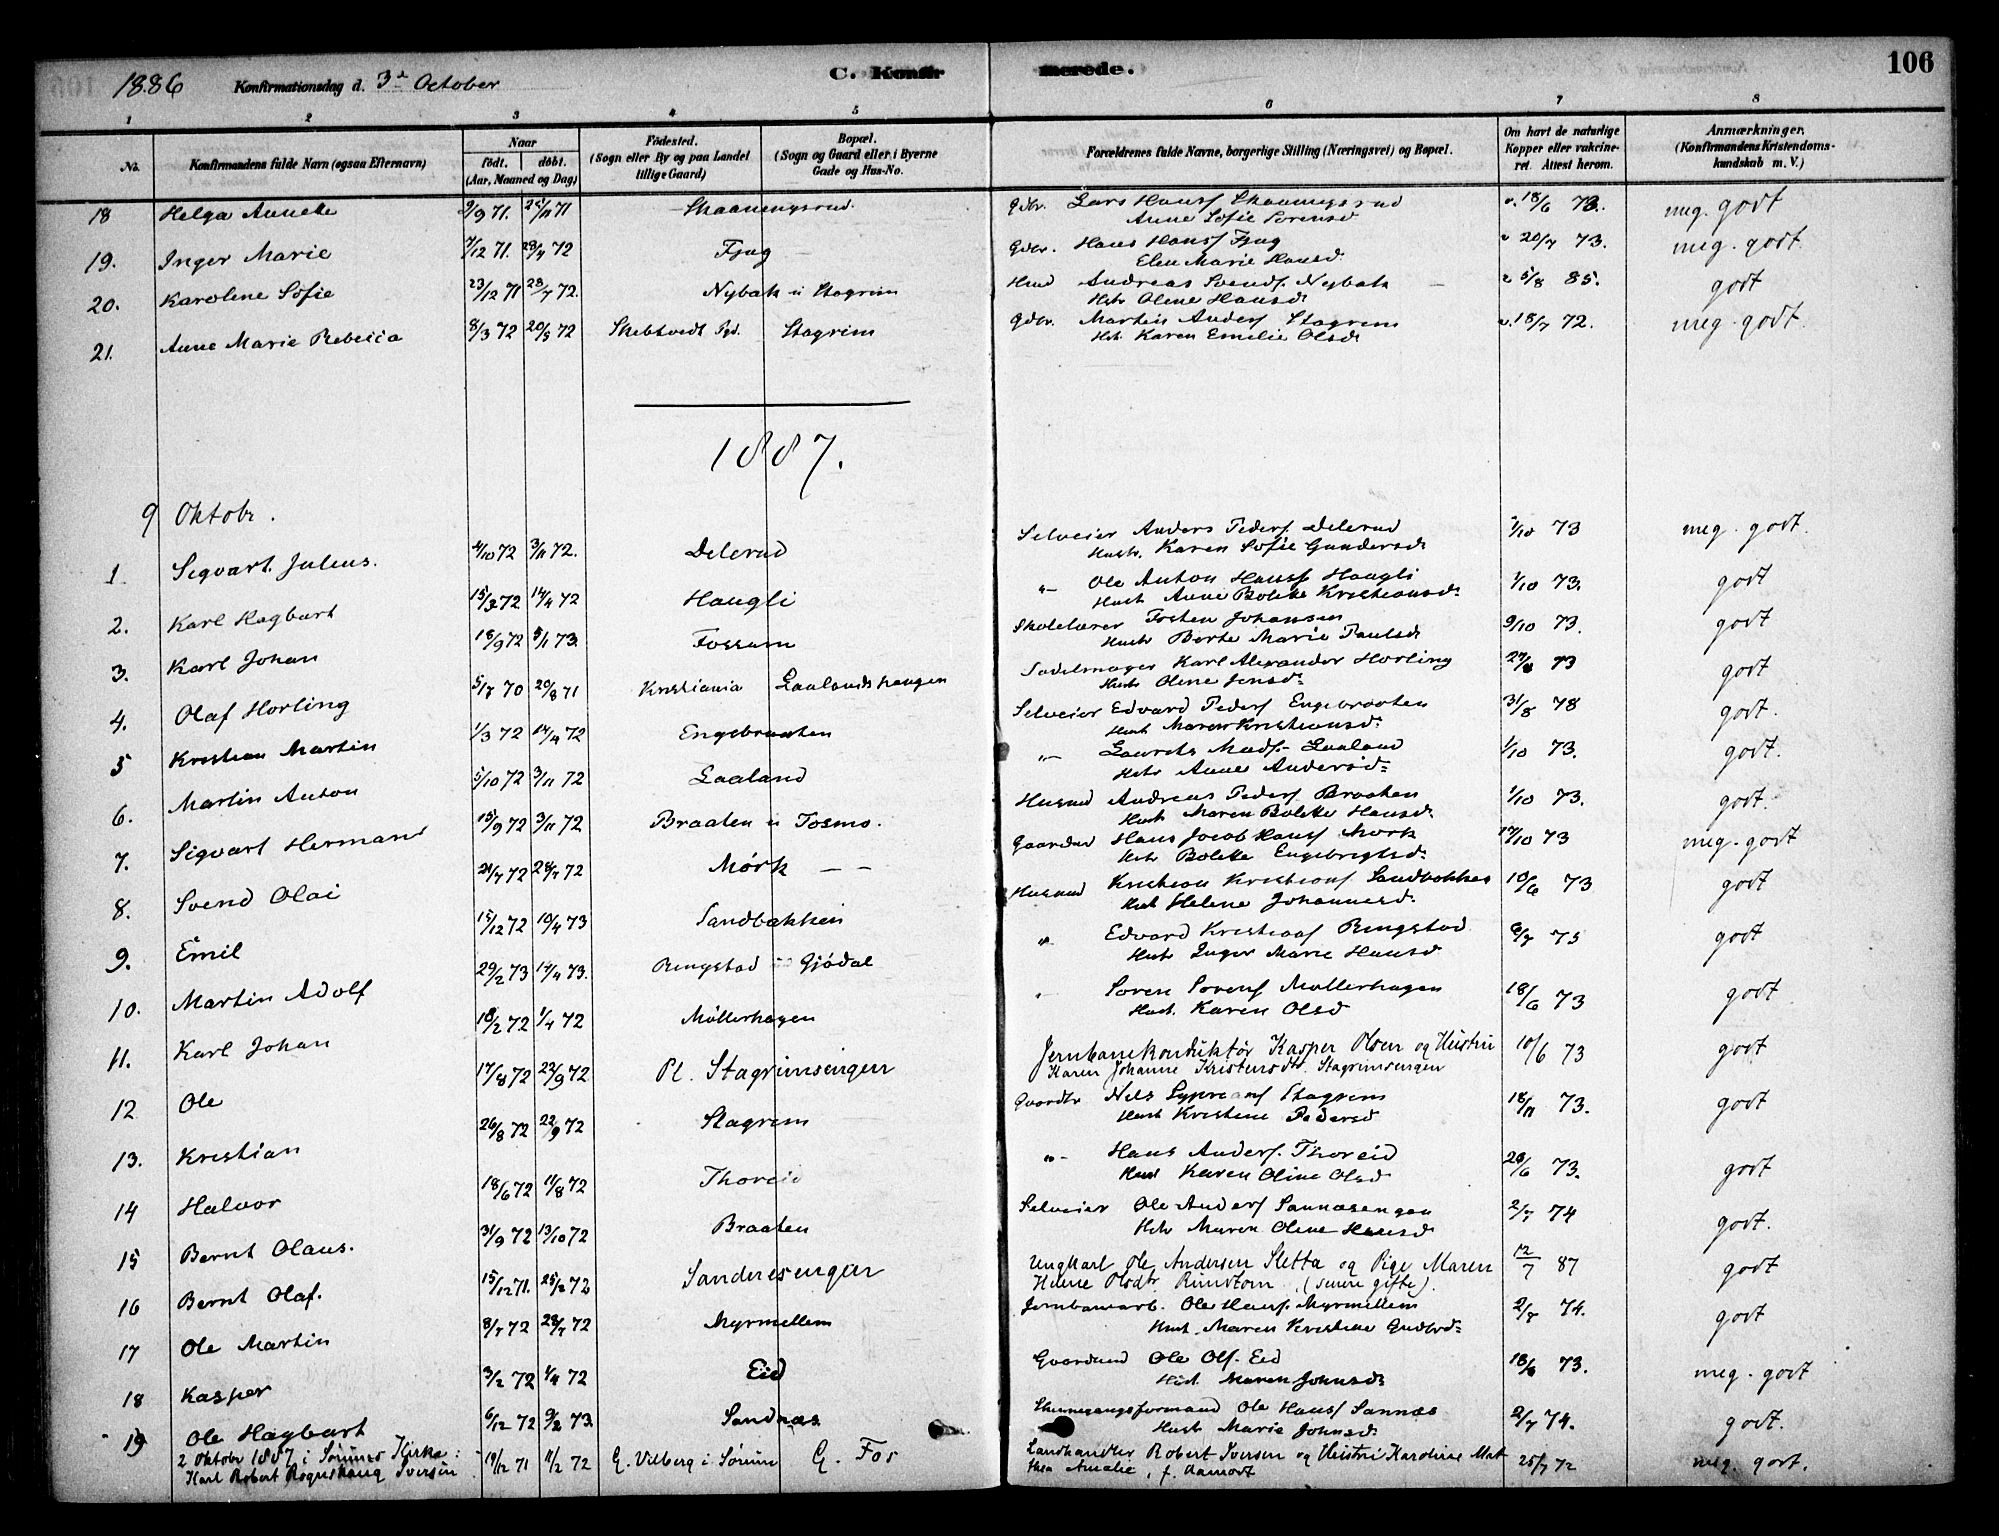 1886 Konfirmationsdag d. 3d October C. Konfirmerede. 106
1 2 3 4 5 6 7 8
No. Konfirmandens fulde Navn (ogsaa Efternavn) Naar født. døbt. (Aar, Maaned og Dag) Födested. (Sogn eller By og paa Landet tillige Gaard) Bopæl. (Sogn og Gaard eller i Byerne Gade og Hus-No. Forældrenes fulde Navne, borgerlige Stilling (Næringsvei) og Bopæl. Om havt de naturlige Kopper eller vakcineret. Attest herom. Anmærkninger. (Konfirmandens Kristendomskundskab m. V.)
18 Helga Annette 9/9 71. 25/11 71 Skaaningsrud Gdbr. Lars Hansf Skaaningsrud v. 18/6 73. meg. godt
Anne Sofie Sorensd
19. Inger Marie 7/12 71. 28/4 72 Fjug Gdbr. Hans Hansf Fjug v 20/7 73. meg. godt
Elen Marie Hansd.
20. Karolene Sofie 23/12 71 28/7 72. Nybak u Stagrim Husd Andreas Svendf. Nybak v 5/8 85. godt
Hstr Olene Hansd.
21. Anne Marie Rebecca 8/3 72 20/5 72 Skebtvedt Stagrim Gdbr. Martin Andersf Stagrim v. 18/7 72. meg. godt.
Hst. Karen Emilie Olsd.
1887.
9 Oktobr.
1. Sigvart Julius. 4/10 72 3/11 72. Delerud Selveier Anders Pedersf. Delerud 1/10 73 meg. godt.
Hustr. Karen Sofie Gundersd.
2. Karl Hagbart 15/3 72 14/4 72 Haugli "- Ole Anton Hansf Haugli 1/10 73. godt
Hust Anne Bolette Kristiansd.
3. Karl Johan 18/9 72 5/1 73. Fossum Skolelærer Tosten Johansen 9/10 73. godt
Hustr Berte Marie Paulsd.
4. Olaf Horling 5/7 70 20/8 71 Kristiania Laalandshaugen Sadelmager Karl Alexander Horling 73 godt
Hustr Olene Jensd.
5 Kristian Martin 1/3 72 14/4 72 Engebraaten Selveier Edvard Pedersf Engebraaten 31/8 78 godt.
Hust Maren Kristiansd.
6. Martin Anton 5/10 72 3/11 72 Laaland "- Laurits Madsf. Laaland 1/10 73. godt.
Hstr Anne Andersd.
7. Sigvart Hermand 15/9 72 3/11 72 Braaten u Fosmo. Husmd Andreas Pedersf Braaten 1/10 73. godt.
Hust Maren Bolette Hansd.
8. Svend Olai 21/7 72 28/7 72 Mørk — — Gaardmd Hans Jacob Hansf Mørk 17/10 73 meg. godt
Hstr Bolette Engebrigtsd.
9. Emil 15/12 72 10/4 73 Sandbakken Husmd Kristian Kristiansf Sandbakken 10/6 73 godt
Hust Helene Johannesd.
10. Martin Adolf 20/2 73 14/4 73. Ringstad u Gjødal " Edvard Kristiansf Ringstad 8/7 75 godt
Hustr Inger Marie Hansd
11. Karl Johan 18/2 72 1/4 72 Møllerhagen " Soren Sorensf Møllerhagen 18/6 73 godt
Hust. Karen Olsd
12 Ole 17/8 72 22/9 72 Pl. Stagrimsengen Jernbanekonduktør Kasper Olsen og Hustru 10/6 73 godt
Karen Johanne Kristensdtr. Stagrimsengen
13. Kristian 26/8 72 22/9 72 Stagrim Gaardbr Nils Sypriansf Stagrim 18/11 73. godt
Hust Kristine Pedersd
14 Halvor 18/6 72 11/8 72 Thoreid "- Hans Andersf. Thoreid 28/6 73. godt
Hust Karen Oline Olsd
15 Bernt Olaus. 31/9 72 13/10 72 Braaten Selveier Ole Andersf Sannæsengen 2/7 74 godt.
Hstr Maren Oline Hansd.
16 Bernt Olaf. 15/12 71. 25/2 72 Sanderesengen Ungkarl Ole Andersen Sletta og Pige Maren 12/7 87 godt
Helene Olsdtr. (senere gifte).
17 Ole Martin 8/7 72 28/7 72 Myrmellem Jernbanearb. Ole Hansf. Myrmellem 2/7 74. godt
Hust. Maren Kristine Gudbrd.
18 Kasper 3/2 72 1/4 72 Eid Gaardmd Ole Olsf. Eid 18/6 73. meg. godt
Hust. Maren Johnsd.
19 Ole Hagbart 6/12 72 9/2 73. Sandnæs Skinnegangsformand Ole Hansf Sannæs 2/7 74. godt.
Hust Marie Johnsd.
2 Oktobr 1887 i Sørums Kirke:
Karl Robert Rognshaug Iversen 19/12 71 11/2 72 G. Vilberg i Sørum G. Fos Landhandler Robert Iversen og Hustru Karoline Mat 25/7 72 meg. godt.
hea Amalie, f. Aamodt